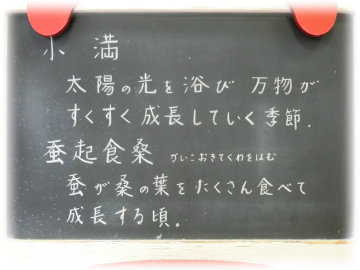 小満
太陽の光を浴び 万物が
すくすく成長していく季節.
蚕起食桑 かいこおきてくわをはむ
蚕が桑の葉をたくさん食べて
成長する頃。